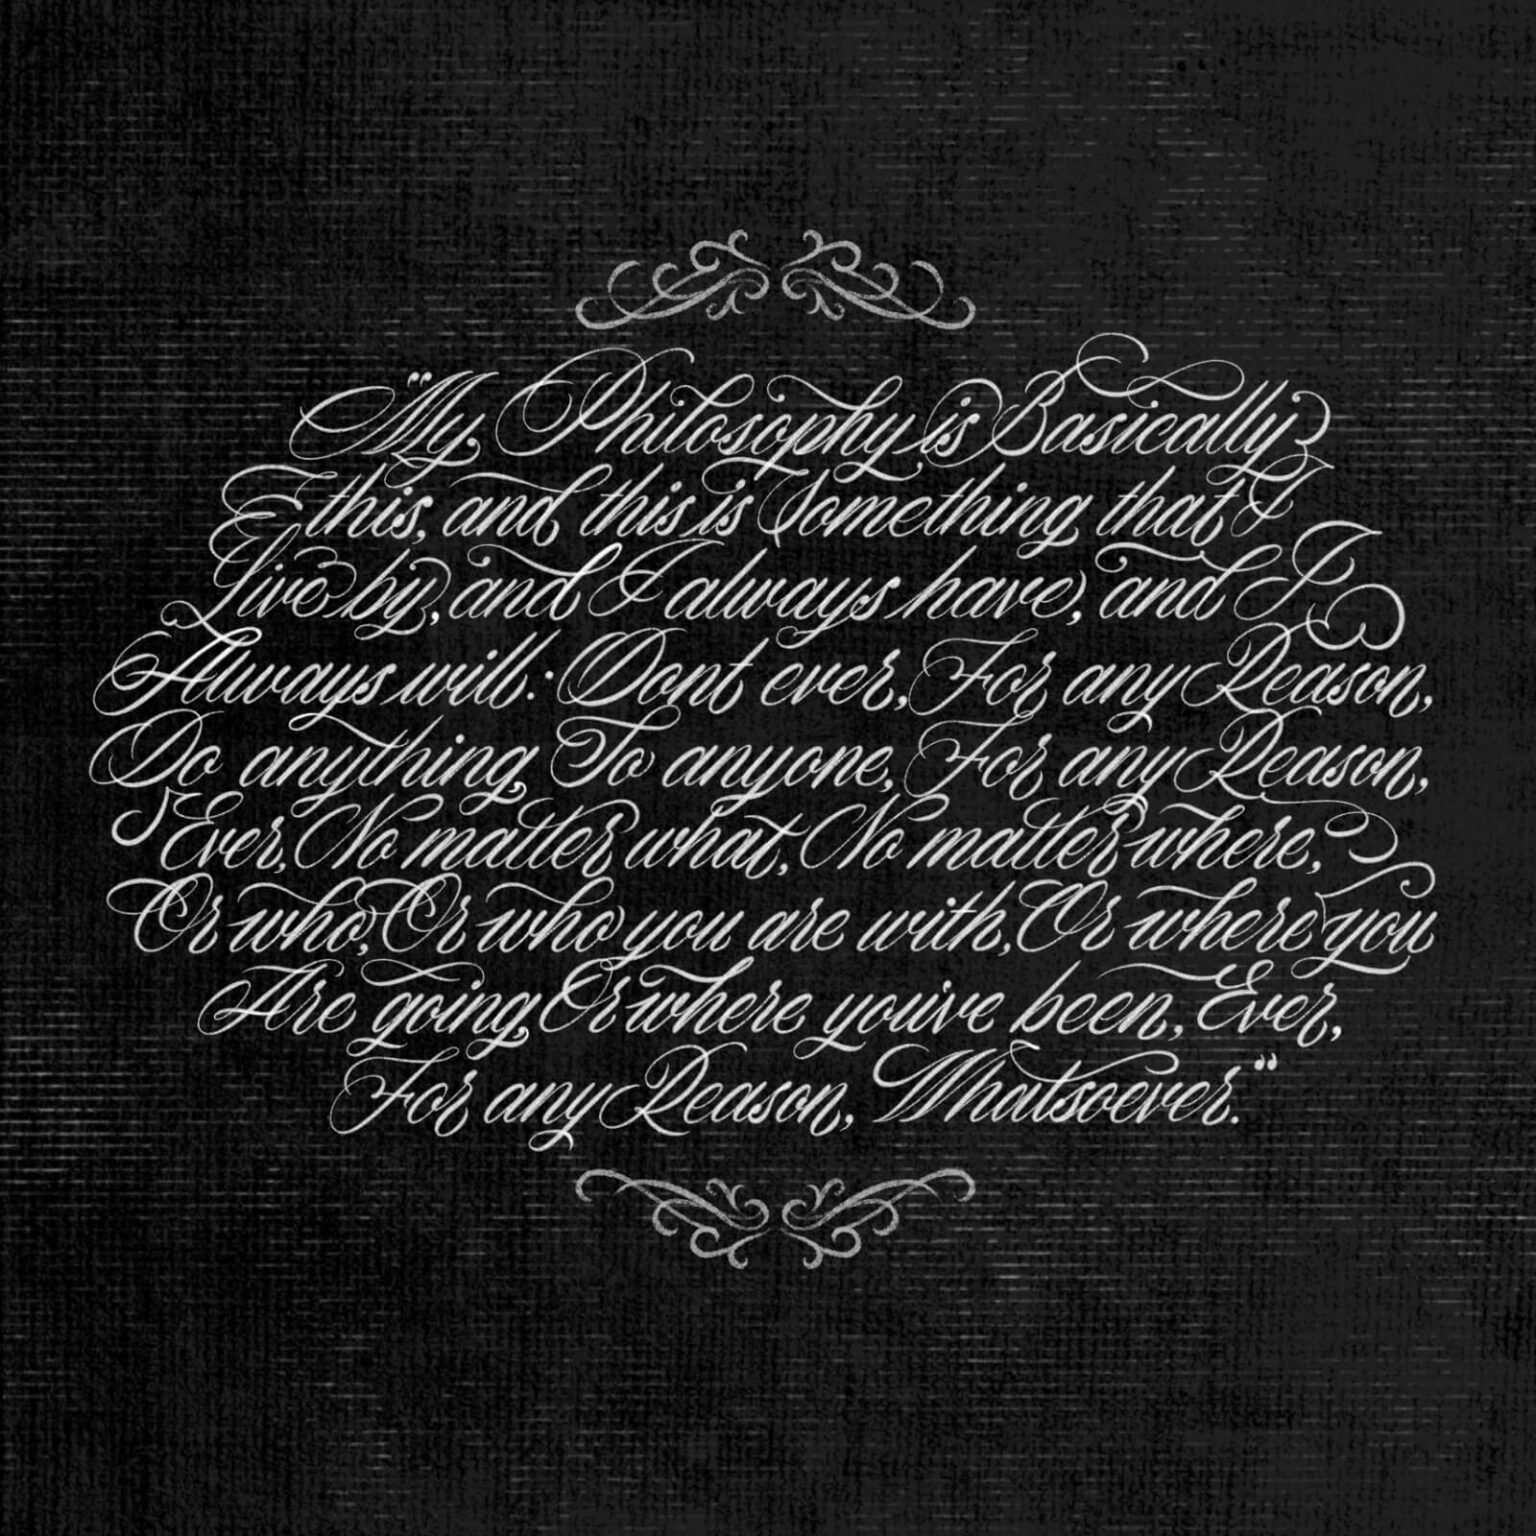 "My Philosophy is Basically
this, and this is Something that I
Live by, and I always have, and I
Always will: Dont ever, For any Reason,
Do anything, To anyone, For any Reason,
Ever, No matter what, No matter where,
Or who, Or who you are with, Or where you
Are going, Or where youve been, Ever,
For any Reason, Whatsoever."